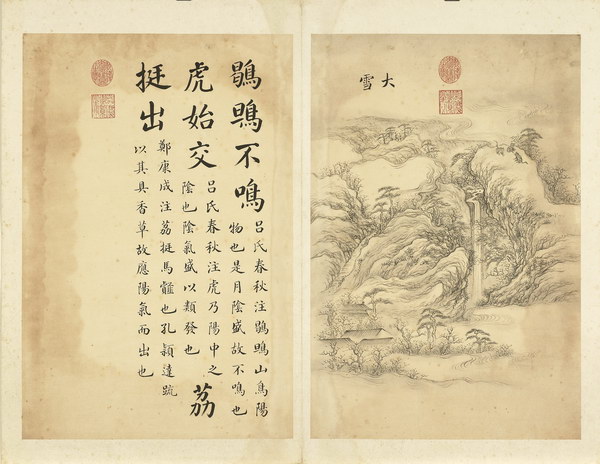 大雪
鶡鴠不鳴
呂氏春秋注鶡鴠山鳥陽
物也是月陰盛故不鳴也
虎始交
呂氏春秋注虎乃陽中之
陰也陰氣盛以類發也
荔
挺出
鄭康成注荔挺馬䪥也孔穎達疏
以其具香草故應陽氣而出也